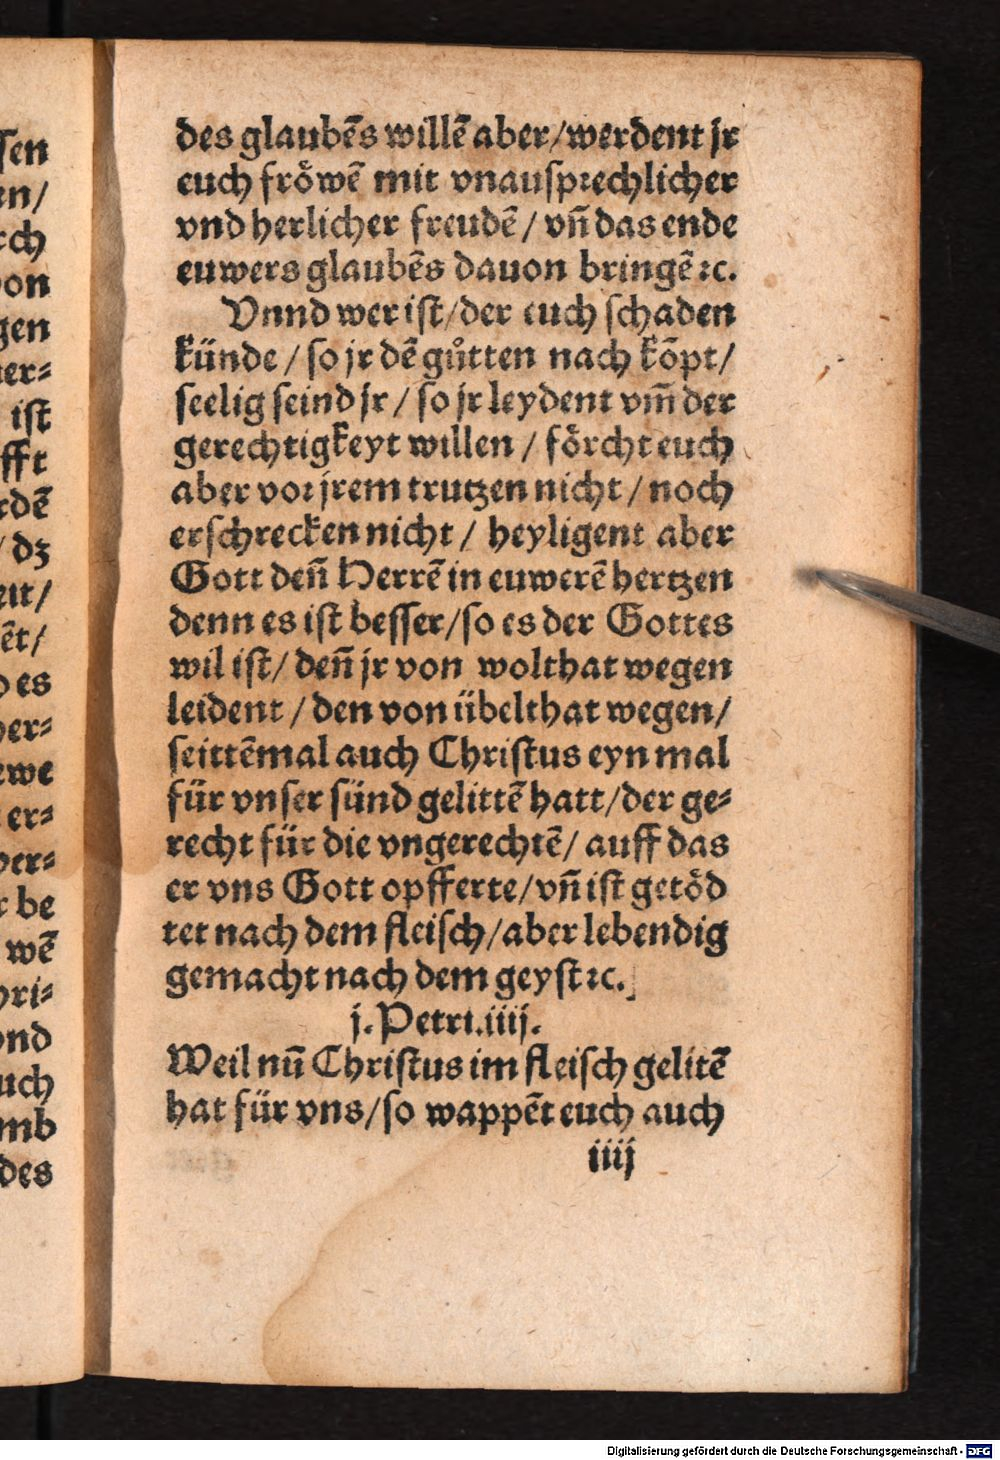 ſen
en/
rch
von
gen
er⸗
iſt
fft
rdẽ
/ dʒ
eit/
ẽt/
es
ver⸗
ewe
er⸗
ver⸗
r be
wẽ
hri⸗
vnd
uch
mb
des
des glaubẽs willẽ aber/werdent jr
euch frôwẽ mit vnauſprechlicher
vnd herlicher freudẽ/ vñ das ende
euwers glaubẽs dauon bringẽ ꝛc.
Vnnd wer iſt/der euch ſchaden
künde / ſo jr dẽ gůtten nach kõpt/
ſeelig ſeind jr / ſo jr leydent vm̃ der
gerechtigkeyt willen / fôrcht euch
aber vor jrem trutzen nicht / noch
erſchrecken nicht / heyligent aber
Gott deñ Herrẽ in euwerẽ hertzen
denn es iſt beſſer/ſo es der Gottes
wil iſt/ deñ jr von wolthat wegen
leident / den von übelthat wegen/
ſeittẽmal auch Chriſtus eyn mal
für vnſer ſünd gelittẽ hatt/der ge⸗
recht für die vngerechtẽ/ auff das
er vns Gott opfferte/vñ iſt getôd
tet nach dem fleiſch/aber lebendig
gemacht nach dem geyſt ꝛc.
j. Petri.iiij.
Weil nũ Chriſtus im fleiſch gelitẽ
hat für vns/ſo wappẽt euch auch
iiij
Digitalisierung gefördert durch die Deutsche Forschungsgemeinschaft - DFG